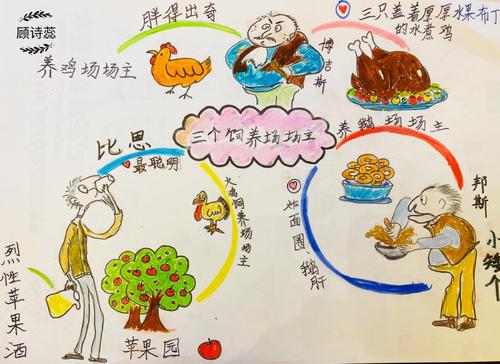 顾诗蕊
胖得出奇
养鸡场场主
博吉斯
三只盖着厚厚水果布丁
的水煮鸡
三个饲养场场主
养鹅场场主
比恩
最聪明
火鸡饲养场场主
烈性苹果酒
苹果园
炸面圈
鹅肝
邦斯
小矮个